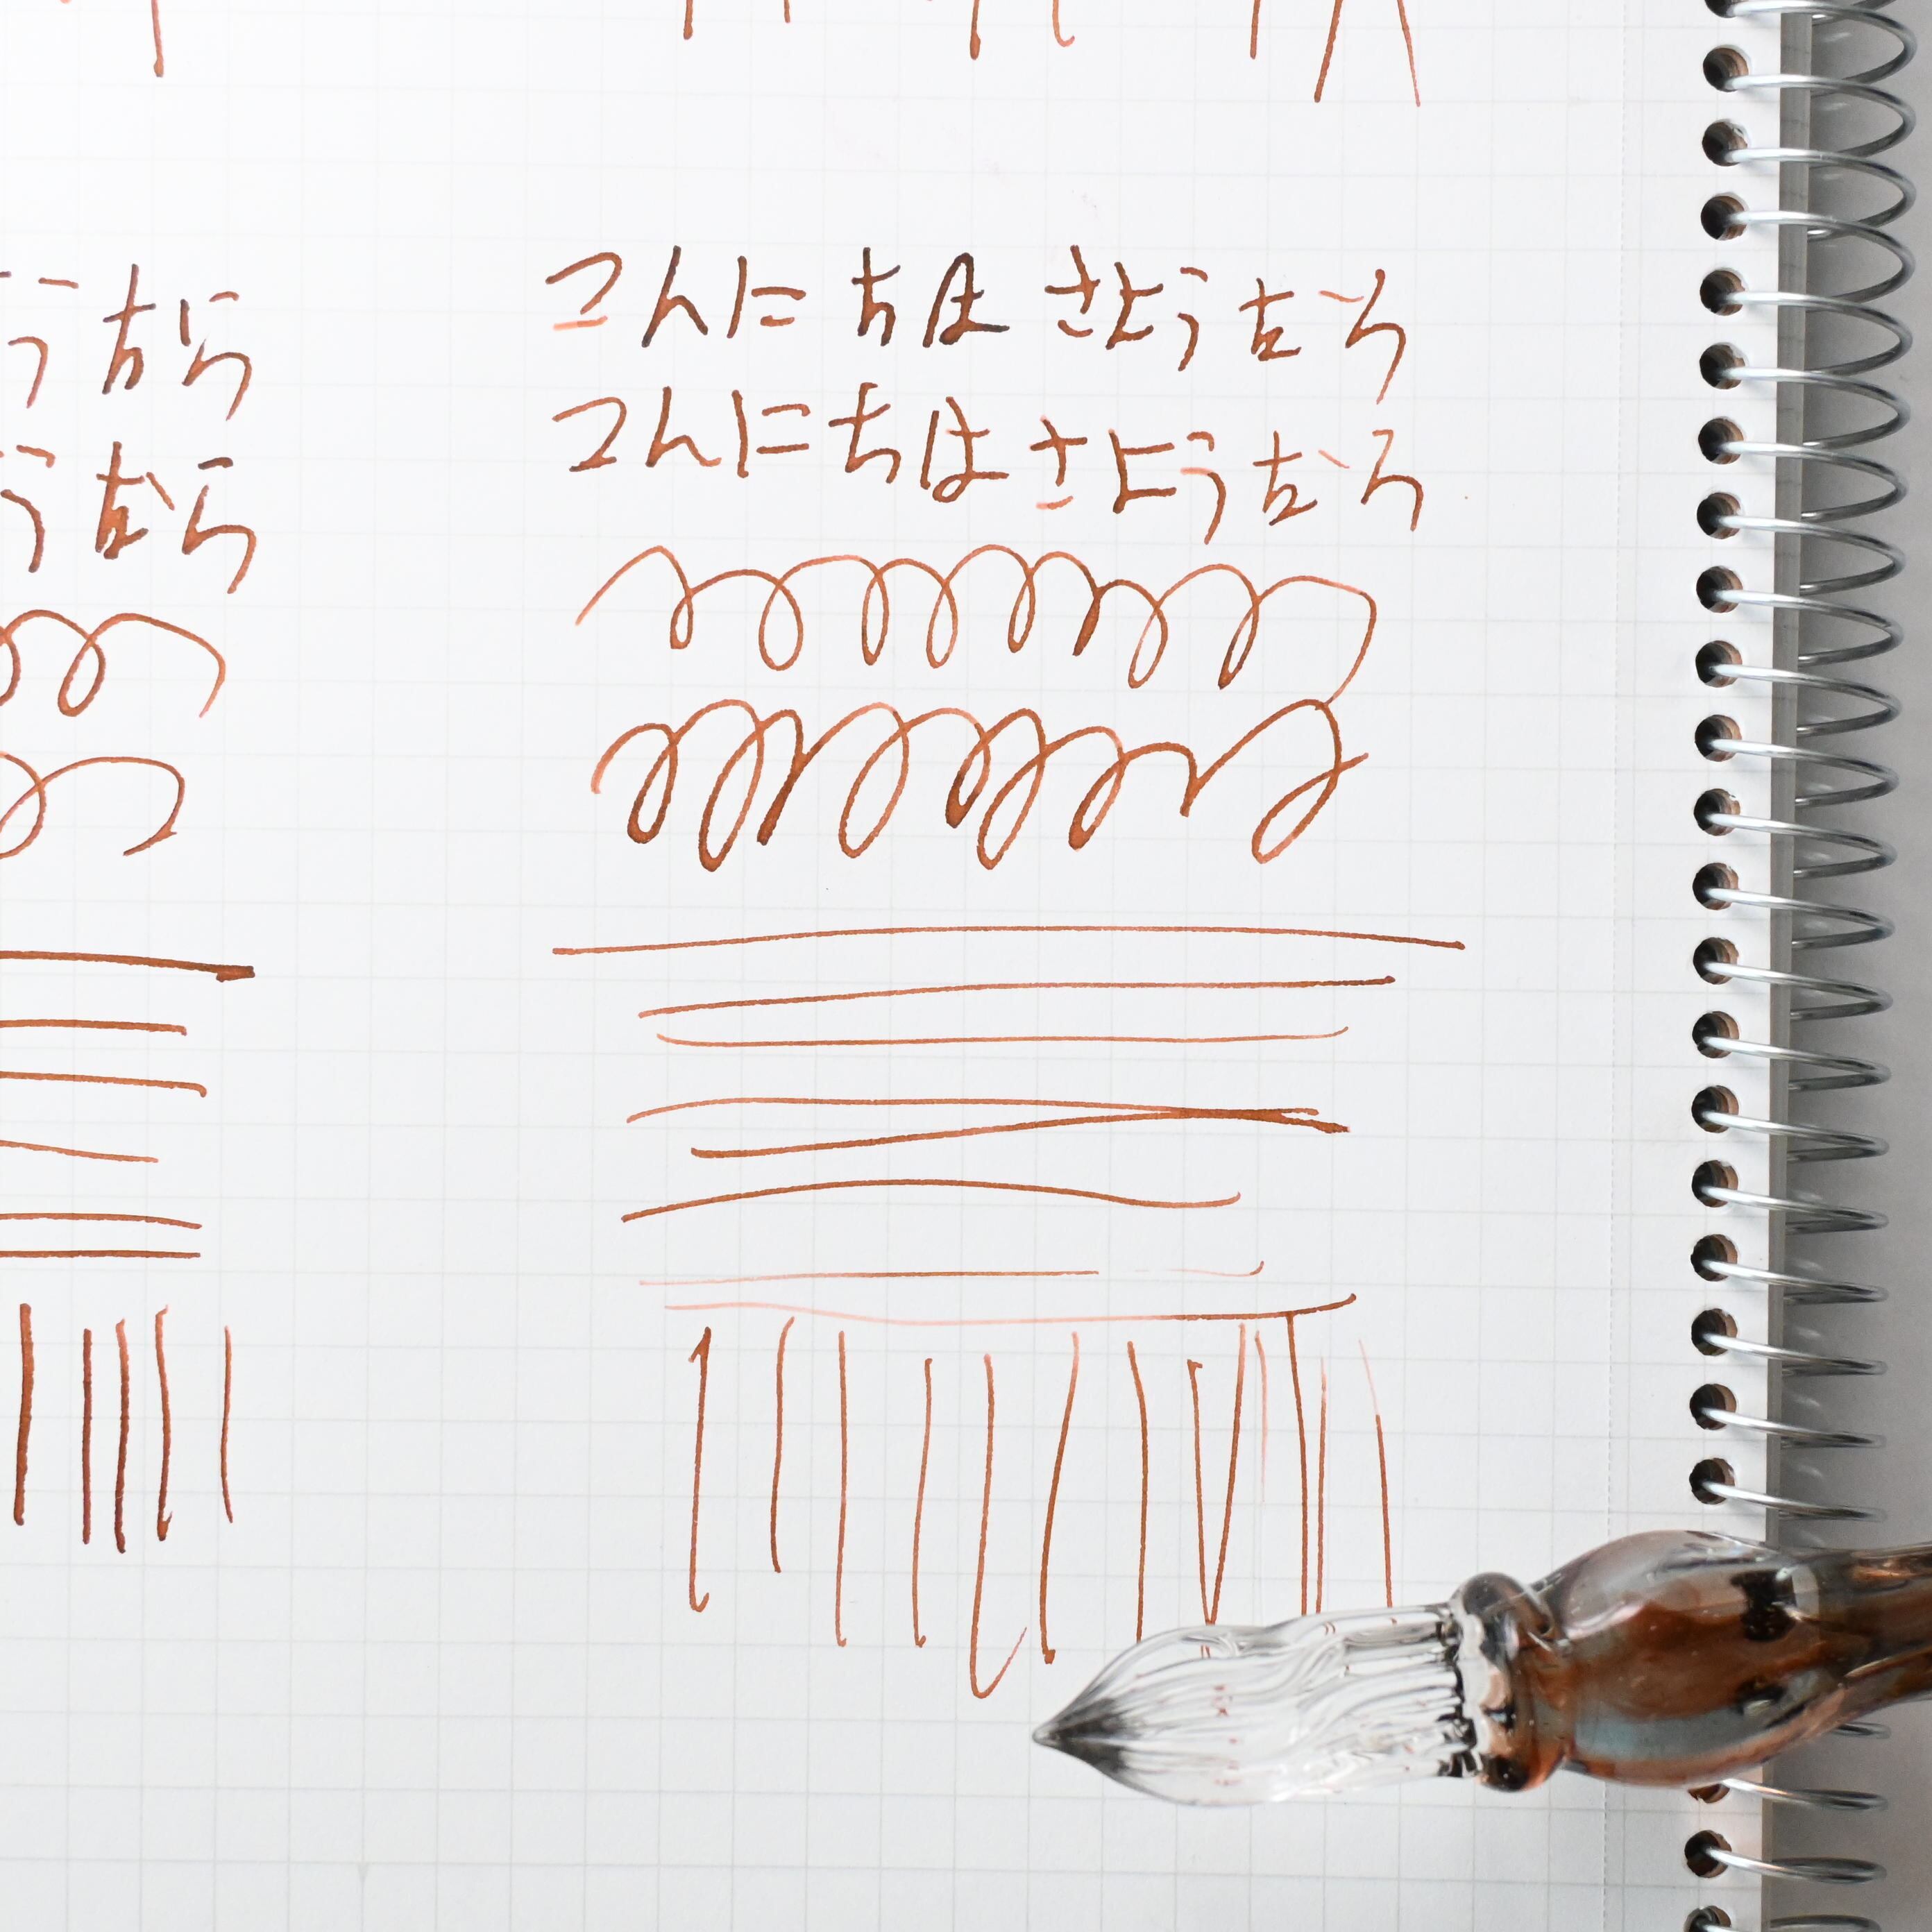 うなら こんにちは さようなら
うなら こんにちは さようなら